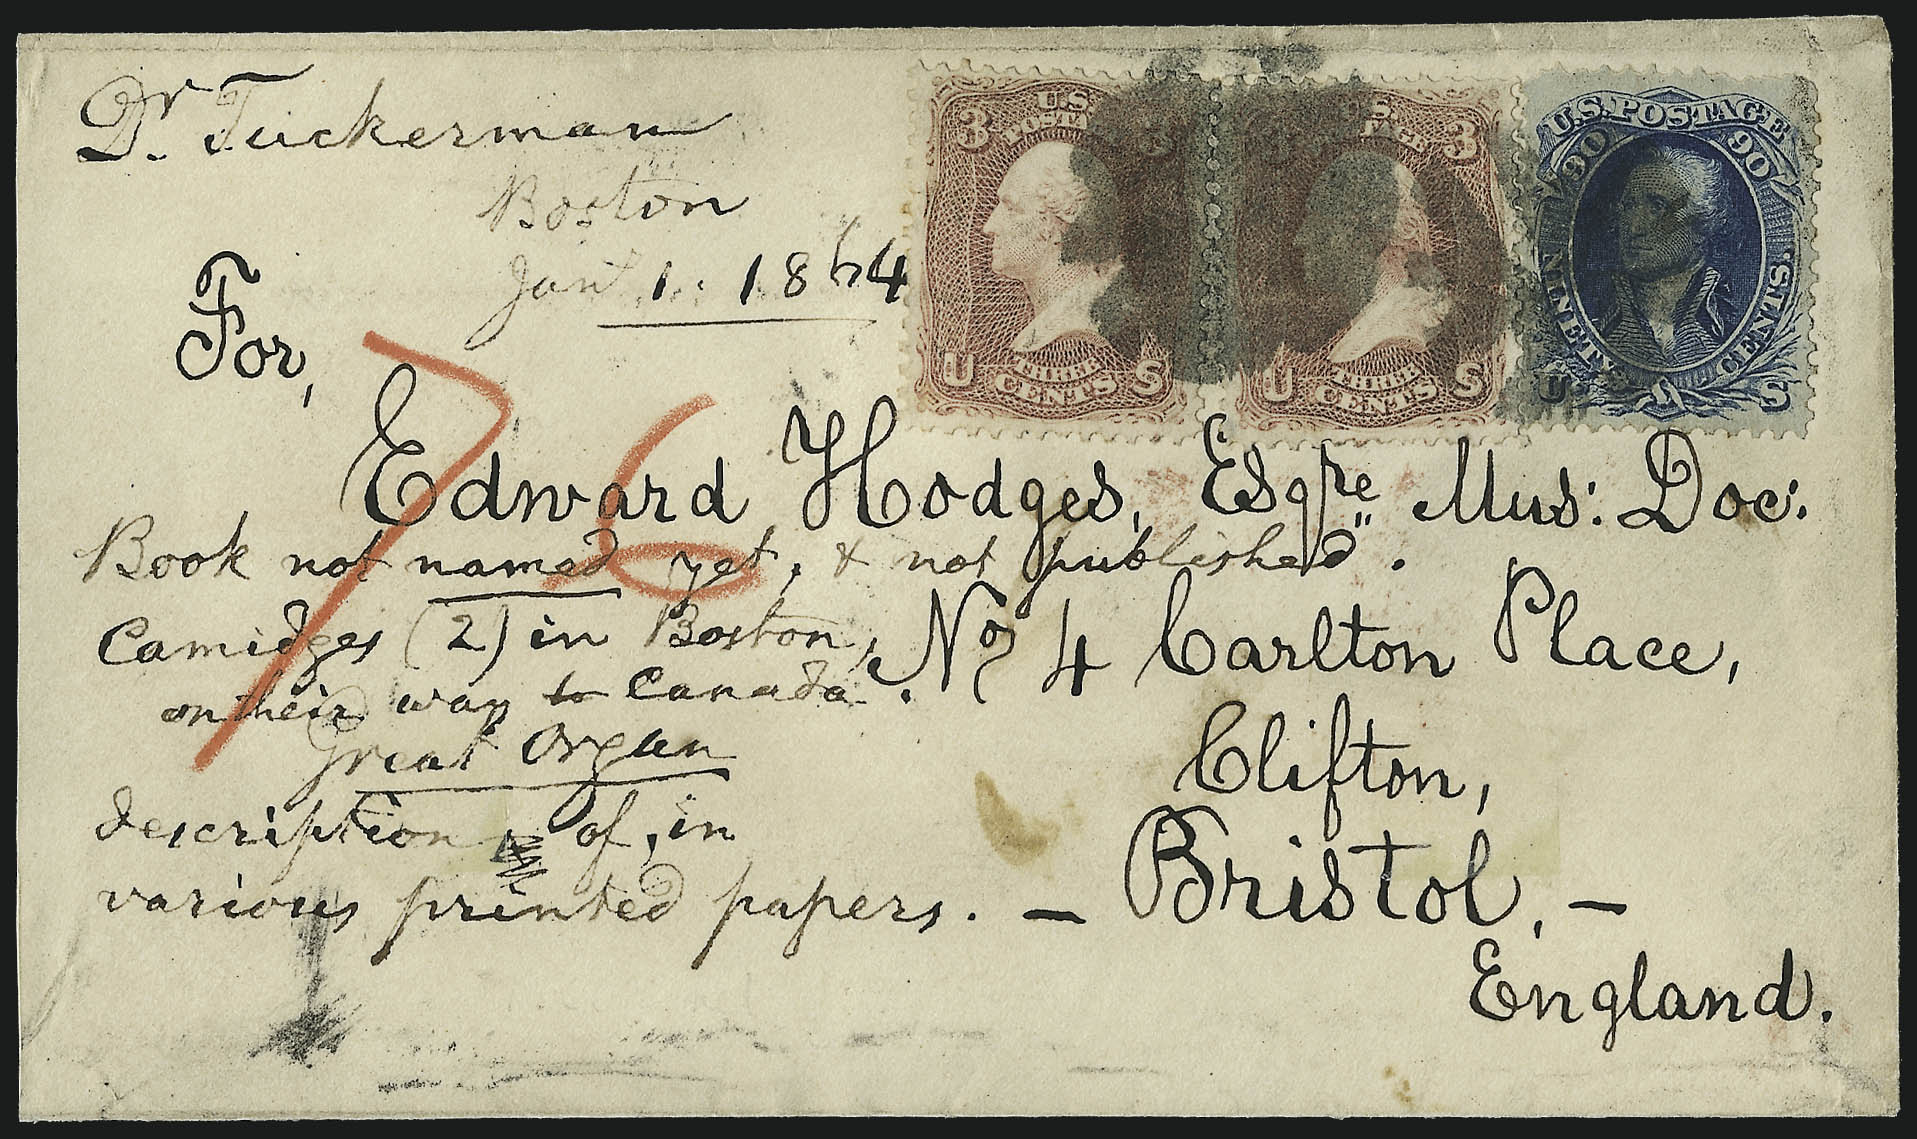 Dr. Tuckerman
Boston
Jany 1. 1864
U.S. POSTA
3 3
U THREE CENTS S
S. AGE
3
U THREE CENTS S
U.S. POSTAGE
90 90
NINETY CENTS.
U S
For,
Edward Hodges, Esqre Mus: Doc:
Book not named yet, & not published".
Camidges (2) in Boston,
on their way to Canada.
No. 4 Carlton Place,
Great Organ
Clifton,
description of, in
various printed papers. —
Bristol, —
England.
76